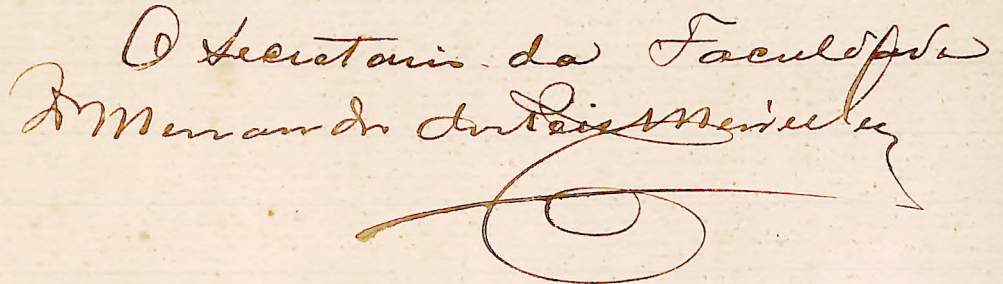 O Secretario da Faculdade
Dr Menandro dos Reis Meirelles